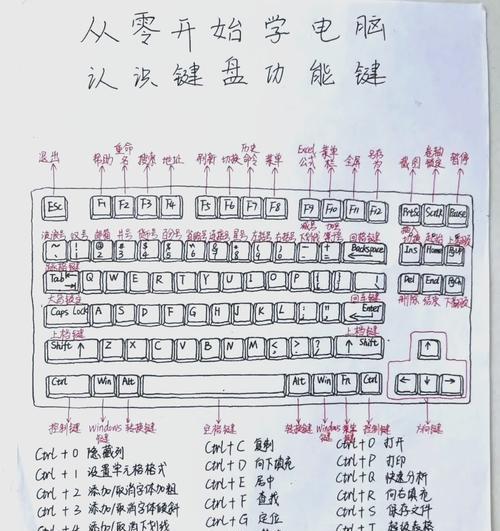 从零开始学电脑
认识键盘功能键
退出 帮助 重命名 搜索 地址 刷新 切换 历史命令 菜单 Excel公式 菜单栏 全屏 另存为 截图 卷轴锁定 暂停
Esc F1 F2 F3 F4 F5 F6 F7 F8 F9 F10 F11 F12 PrtSc Scrlk Pause
波浪号 叹号 邮箱 井号 货币号 百分号 省略号 连接号 星号 左括号 右括号 减号 下划线 加号 等号 回格键
~ ! @ 2 # 3 $ 4 % 5 Backspace Ins Home PgUp
跳格键
Tab Q W E R T Y U I O P Del End PgDn
大写锁定 回车键 删除 结束 下翻页
Caps Lock A S D F G H J K L Enter
上档键 上档键
Shift ↑ Z X C V B N M ↑ Shift ↑
Ctrl Win Alt Alt Win Fn Ctrl ← ↓ →
控制键 Windows键 转换键 空格键 转换键 Windows键 菜单键 控制键 方向键
Ctrl + 0 隐藏列 Ctrl + C 复制 Ctrl + O 打开
Ctrl + 1 设置单元格格式 Ctrl + D 向下填充 Ctrl + P 打印
Ctrl + 2 添加/取消字体加粗 Ctrl + E 居中 Ctrl + Q 快速分析
Ctrl + 3 添加/取消字体倾斜 Ctrl + F 查找 Ctrl + R 向右填充
Ctrl + 4 添加/取消下划线 Ctrl + G 定位 Ctrl + S 保存文件
Ctrl + T